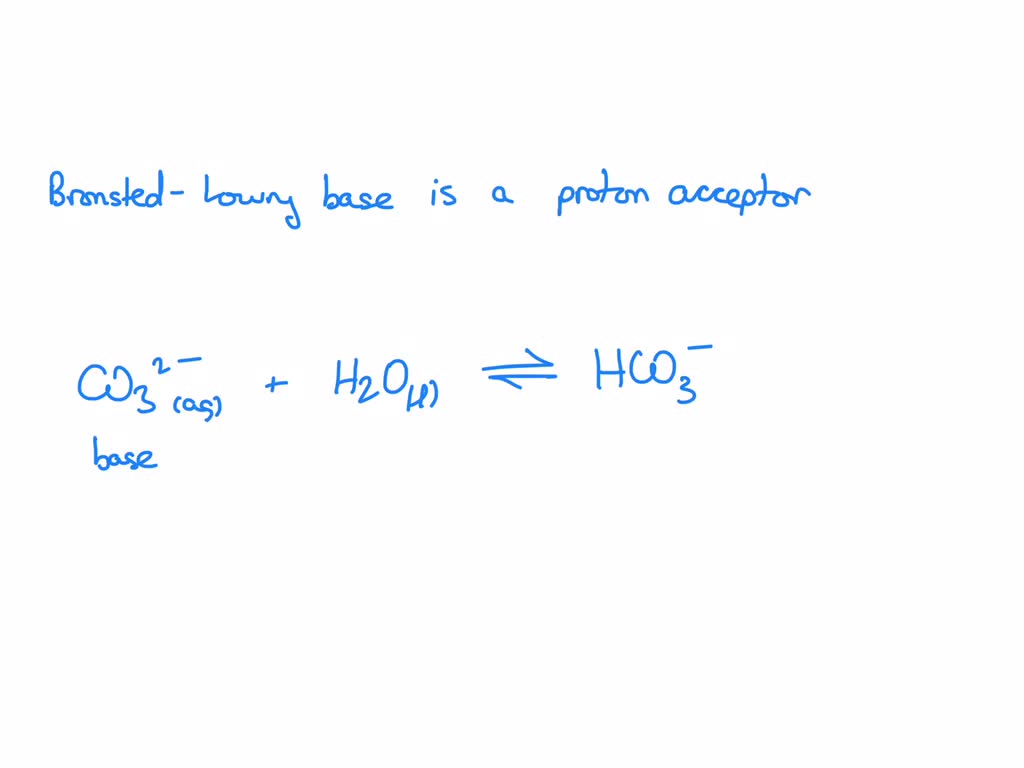 Bronsted-Lowry base is a proton acceptor
CO₃²⁻(aq) + H₂O(l) ⇌ HCO₃⁻
base